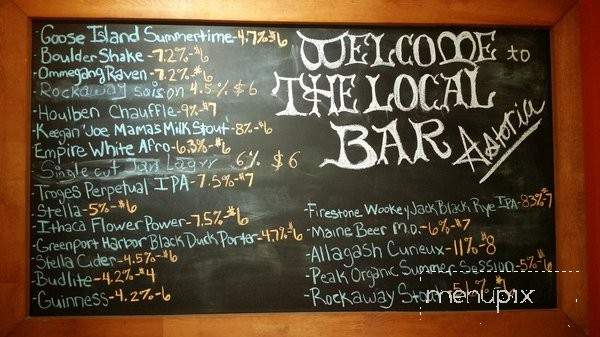 Goose Island Summertime-4.7% $6
Boulder Shake -7.2%-$6
Ommegang Raven -7.2%-$6
Rockaway saison 4.5% $6
Houlben Chauffle-9%-$7
Keegan "Joe Mamas Milk Stout"-8%-$6
Empire White Afro-6.3%-$6
Single cut Jan Lagrr 6% $6
Troges Perpetual IPA-7.5%-$7
Stella-5%-$6
Ithaca Flower Power-7.5%-$6
Greenport Harbor Black Duck Porter-4.7%-$6
Stella Cider-4.5%-$6
Budlite-4.2%-$4
Guinness-4.2%-6
WELCOME to
THE LOCAL
BAR Astoria
Firestone Wookey Jack Black Rye IPA-8.3%-$7
Maine Beer M.O.-6%-$7
Allagash Curieux-11%-$8
Peak Organic Summer Session-5%-$6
Rockaway
menupix